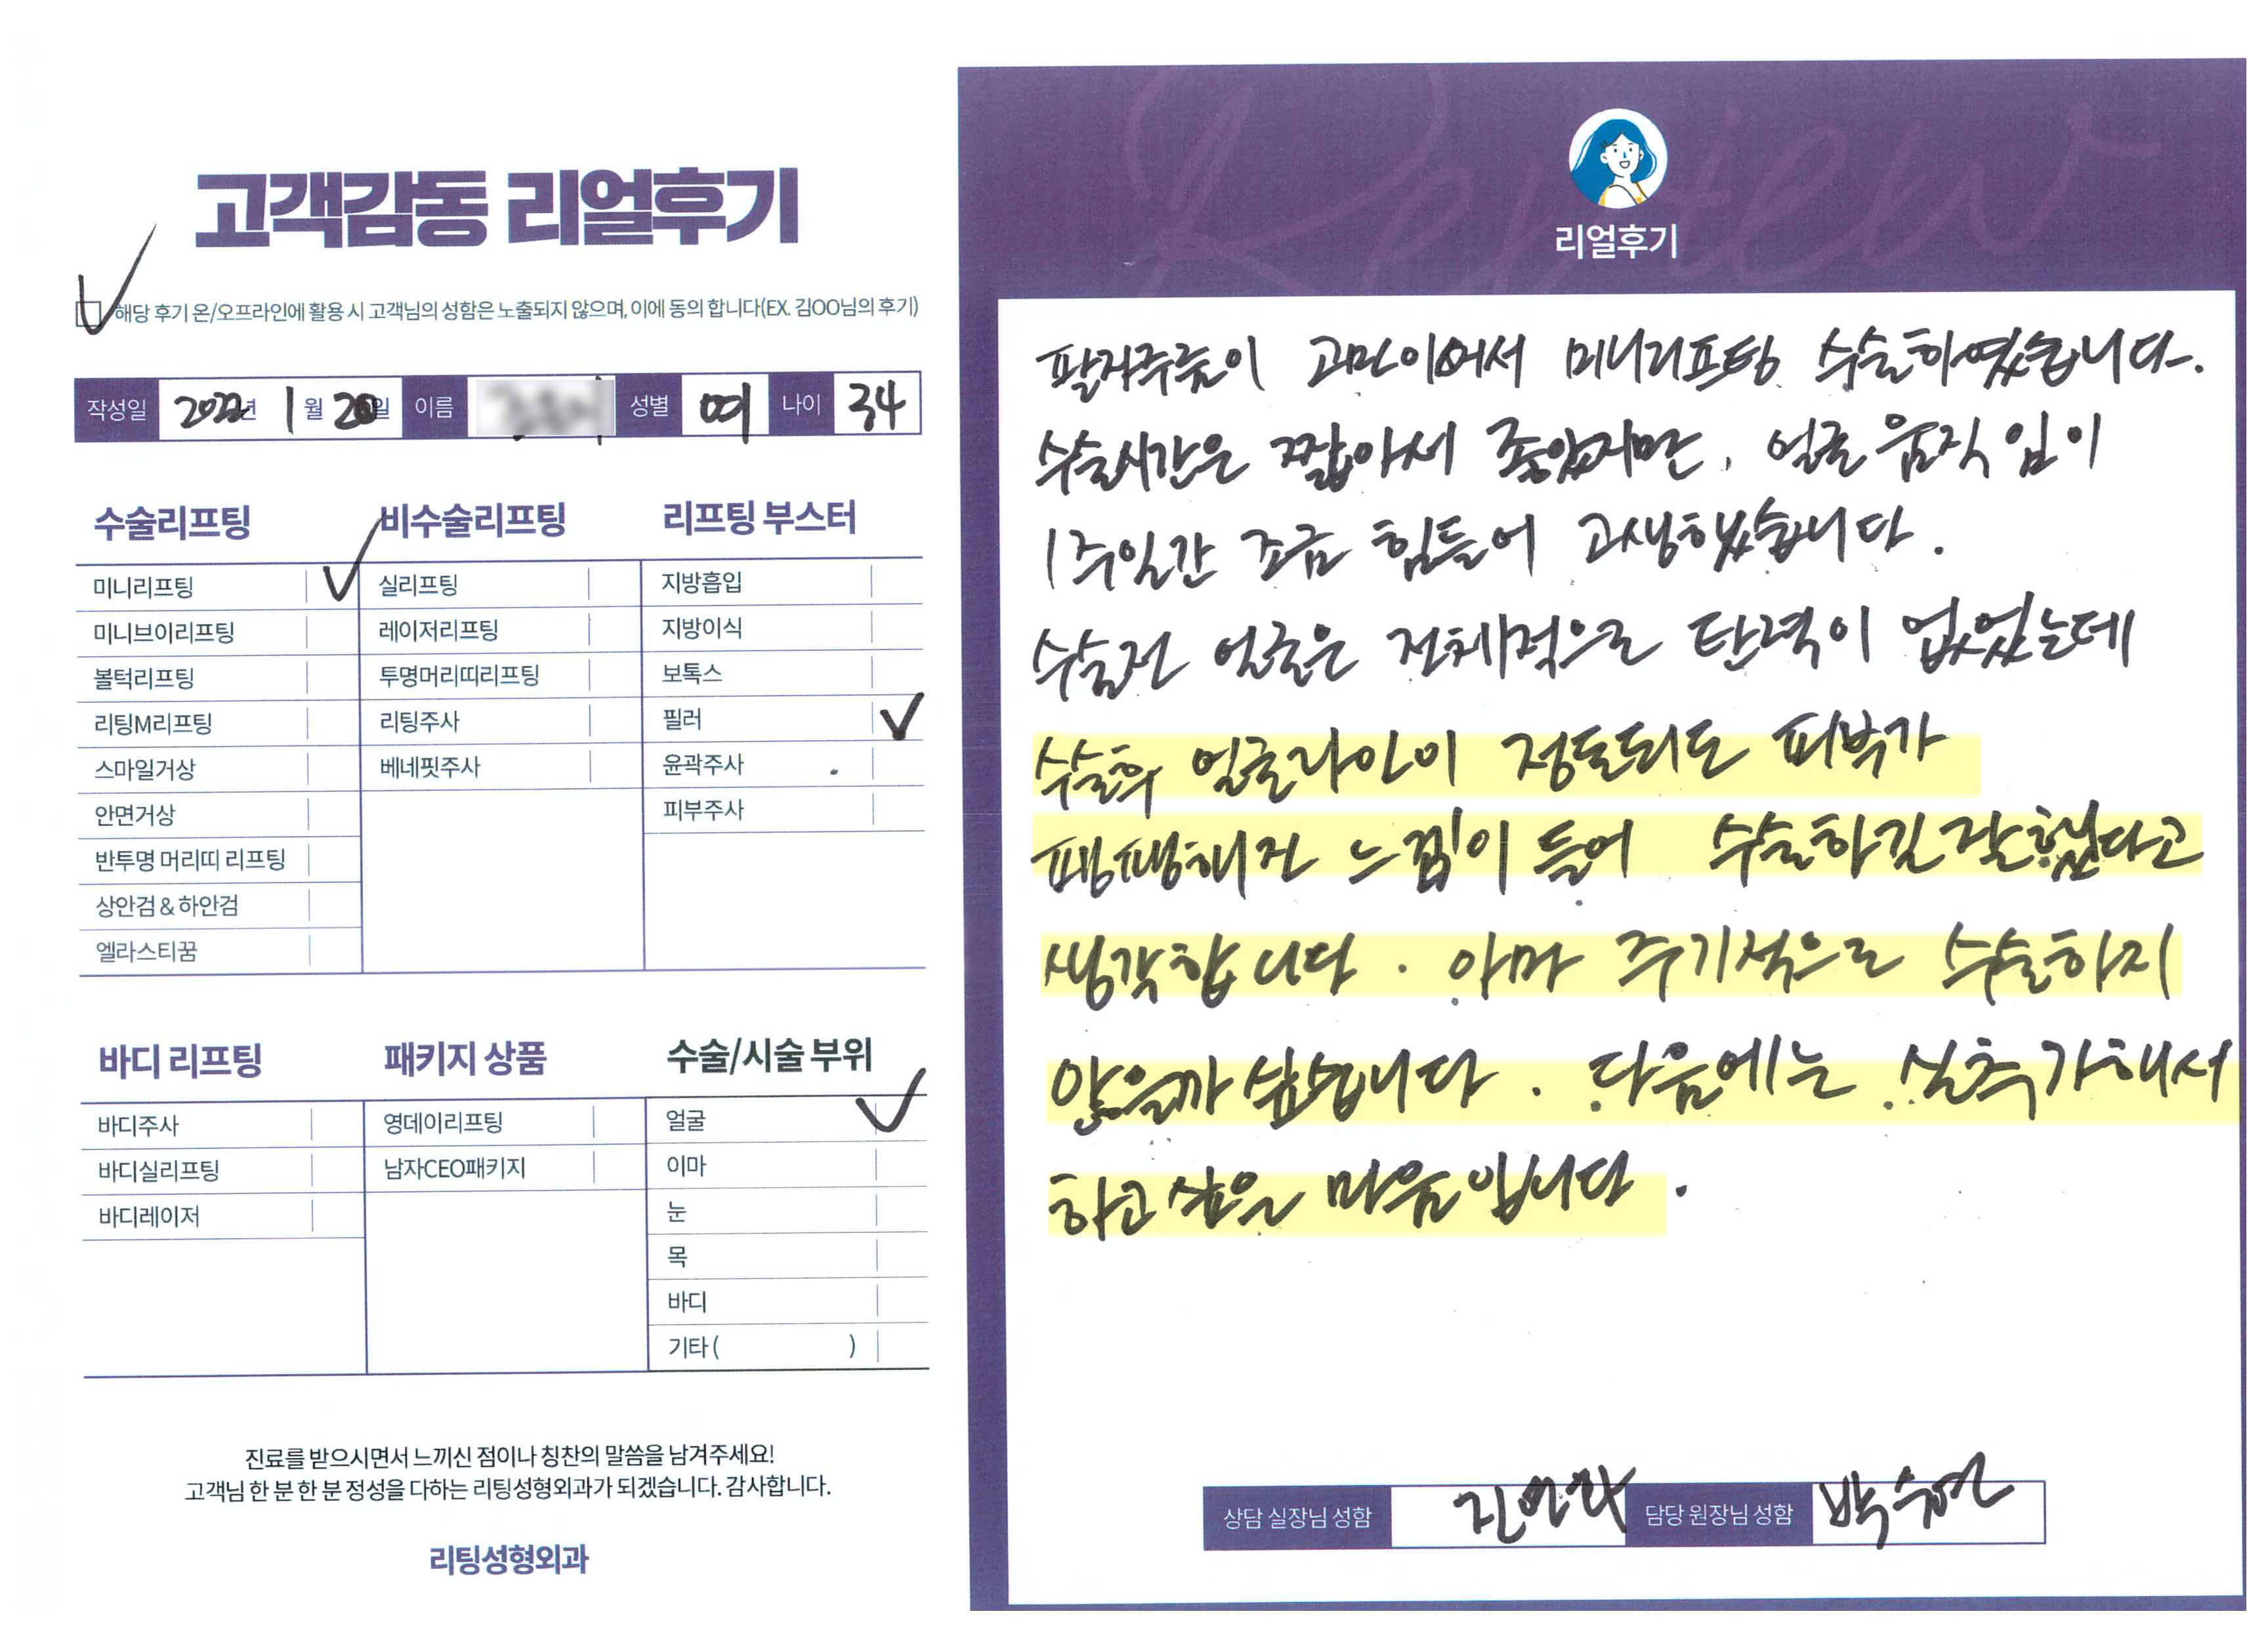 고객감동 리얼후기
해당 후기 온/오프라인에 활용 시 고객님의 성함은 노출되지 않으며, 이에 동의 합니다(EX. 김OO님의 후기)
작성일 2022년 1월 20일 이름 성별 여 나이 34
수술리프팅
미니리프팅
미니브이리프팅
볼턱리프팅
리팅M리프팅
스마일거상
안면거상
반투명 머리띠 리프팅
상안검 & 하안검
엘라스티꿈
비수술리프팅
실리프팅
레이저리프팅
투명머리띠리프팅
리팅주사
베네핏주사
리프팅 부스터
지방흡입
지방이식
보톡스
필러
윤곽주사
피부주사
바디 리프팅
바디주사
바디실리프팅
바디레이저
패키지 상품
영데이리프팅
남자CEO패키지
수술/시술 부위
얼굴
이마
눈
목
바디
기타 ( )
진료를 받으시면서 느끼신 점이나 칭찬의 말씀을 남겨주세요!
고객님 한 분 한 분 정성을 다하는 리팅성형외과가 되겠습니다. 감사합니다.
리팅성형외과
Review
리얼후기
팔자주름이 고민이어서 미니리프팅 수술하였습니다.
수술시간은 짧아서 좋았지만, 얼굴 움직임이
1주일간 조금 힘들어 고생했습니다.
수술전 얼굴은 전체적으로 탄력이 없었는데
수술후 얼굴라인이 정돈되도 피부가
팽팽해진 느낌이 들어 수술하길 잘했다고
생각합니다. 아마 주기적으로 수술하지
않을까 싶습니다. 다음에는 실추가해서
하고 싶은 마음입니다.
상담 실장님 성함 담당 원장님 성함 박수